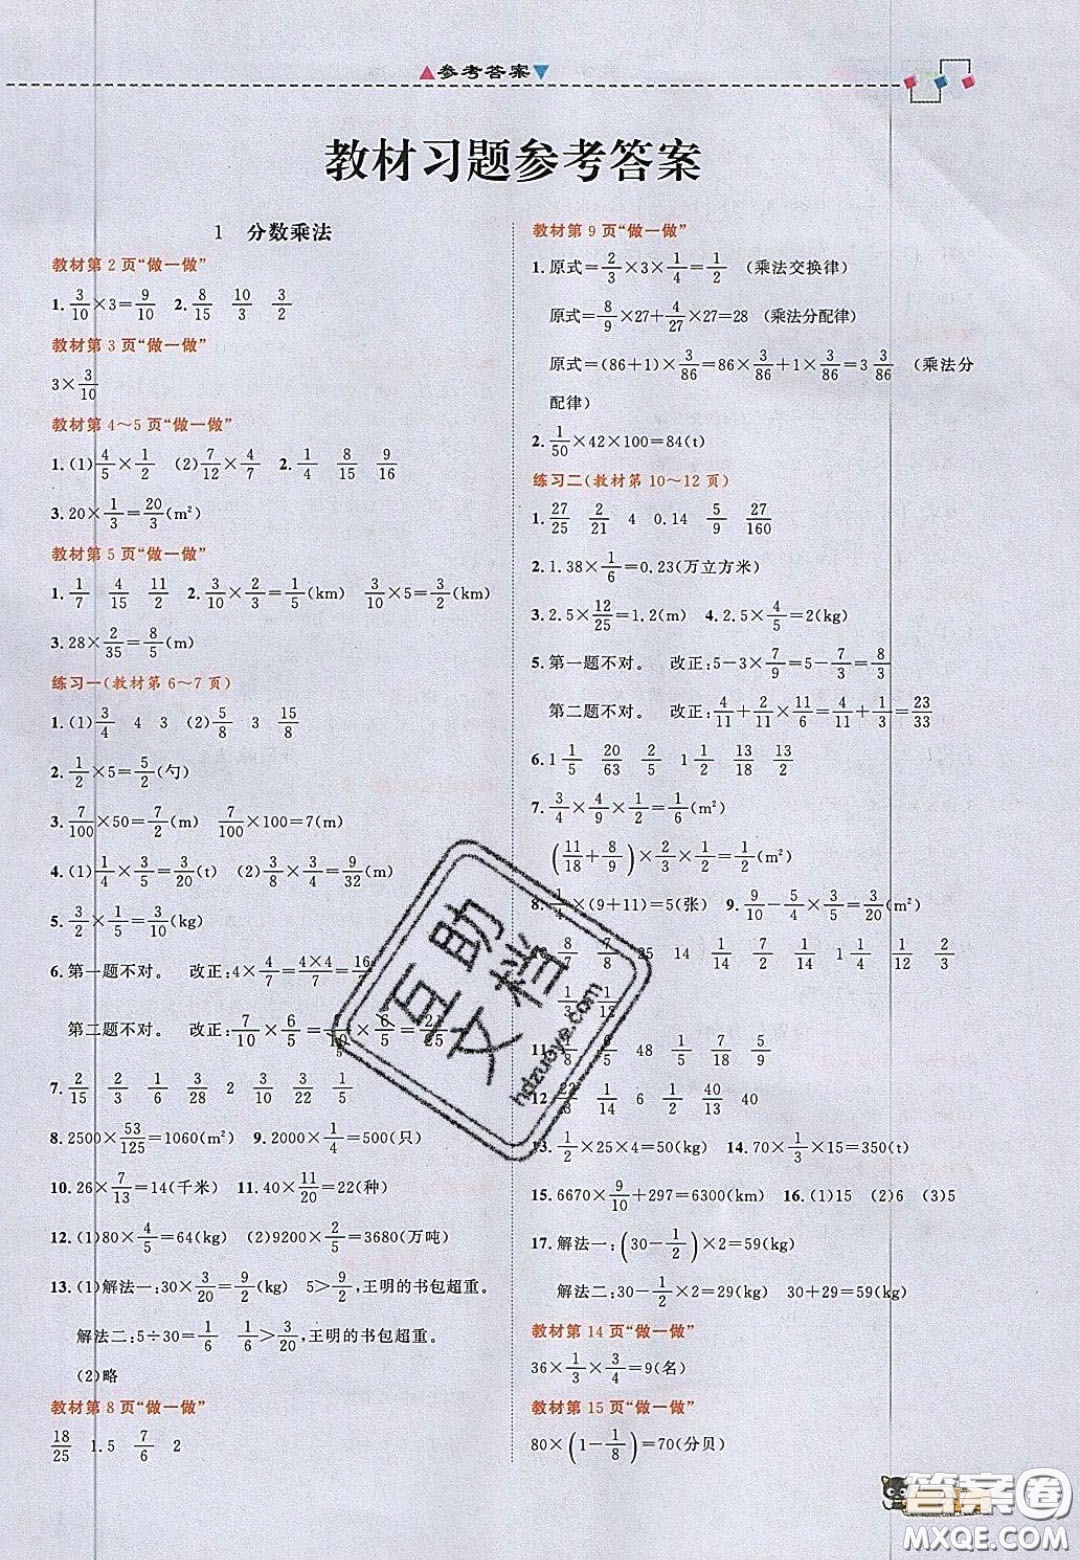 参考答案
教材习题参考答案
1 分数乘法
教材第2页“做一做”
1. 3/10×3=9/10 2. 8/15 10/3 3/2
教材第3页“做一做”
3×3/10
教材第4～5页“做一做”
1.(1)4/5×1/2 (2)7/12×4/7 2. 1/4 8/15 9/16
3.20×1/3=20/3(m²)
教材第5页“做一做”
1. 1/7 4/15 11/2 2. 3/10×2/3=1/5(km) 3/10×5=3/2(km)
3.28×2/35=8/5(m)
练习一(教材第6～7页)
1.(1)3/4 4 3 (2)5/8 3 15/8
2. 1/2×5=5/2(勺)
3. 7/100×50=7/2(m) 7/100×100=7(m)
4.(1)1/4×3/5=3/20(t) (2)3/8×3/4=9/32(m)
5. 3/2×1/5=3/10(kg)
6.第一题不对。 改正:4×4/7=4×4/7=16/7
第二题不对。 改正:7/10×6/5= ×6/5=21/25
7. 2/15 2/3 1/6 3/8 2 3/10 3/4 1/5
8.2500×53/125=1060(m²) 9.2000×1/4=500(只)
10.26×7/13=14(千米) 11.40×11/20=22(种)
12.(1)80×4/5=64(kg) (2)9200×2/5=3680(万吨)
13.(1)解法一:30×3/20=9/2(kg) 5>9/2,王明的书包超重。
解法二:5÷30=1/6 1/6>3/20,王明的书包超重。
(2)略
教材第8页“做一做”
18/25 1.5 7/6 2
教材第9页“做一做”
1.原式=2/3×3×1/4=1/2 (乘法交换律)
原式=8/9×27+4/27×27=28 (乘法分配律)
原式=(86+1)×3/86=86×3/86+1×3/86=3 3/86 (乘法分
配律)
2. 1/50×42×100=84(t)
练习二(教材第10～12页)
1. 27/25 2/21 4 0.14 5/9 27/160
2.1.38×1/6=0.23(万立方米)
3.2.5×12/25=1.2(m) 4.2.5×4/5=2(kg)
5.第一题不对。 改正:5-3×7/9=5-7/3=8/3
第二题不对。 改正:4/11+2/11×11/6=4/11+1/3=23/33
6.1 1/5 20/63 2/5 1 1/2 13/50 13/2
7. 3/4×4/9×1/2=1/6(m²)
(11/18+8/9)×2/3×1/2=1/2(m²)
8. 1/4×(9+11)=5(张) 9. 9/10-5/4×3/5=3/20(m²)
8/7 7/8 35 14 1/14 7/2 1/14 1 1/4 1/12 2/3
1/3 1/12
11. /8 6/5 48 1/5 7/18 5/9
12. 22/3 1/14 6 1/12 40/13 40
13. 1/2×25×4=50(kg) 14.70×1/3×15=350(t)
15.6670×9/10+297=6300(km) 16.(1)15 (2)6 (3)5
17.解法一:(30-1/2)×2=59(kg)
解法二:30-1/2×2=29(kg) 30+29=59(kg)
教材第14页“做一做”
36×1/3×3/4=9(名)
教材第15页“做一做”
80×(1-1/8)=70(分贝)
互助
文档
hdzuoye.com
答案圈
MXQE.COM